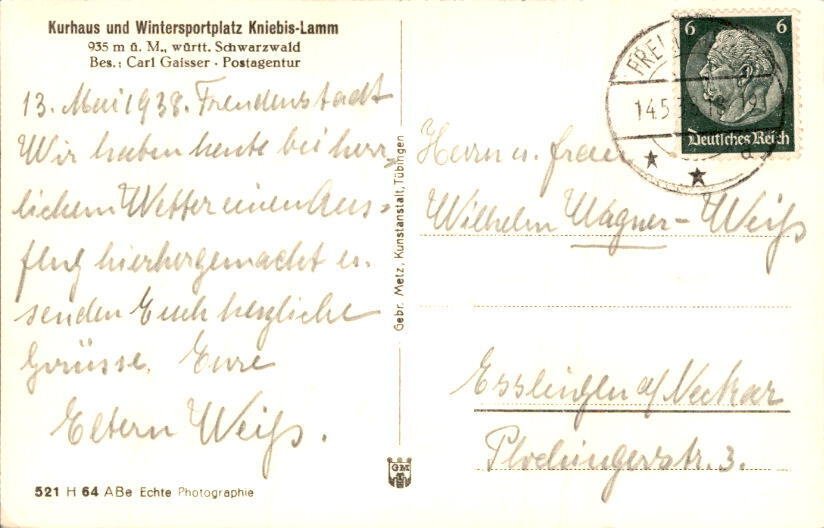 Kurhaus und Wintersportplatz Kniebis-Lamm
935 m ü. M., württ. Schwarzwald
Bes.: Carl Gaisser · Postagentur
13. Mai 1938. Freudenstadt
Wir haben heute bei herr-
lichem Wetter einen Aus-
flug hierher gemacht u.
senden Euch herzliche
Grüsse. Eure
Eltern Weiß.
521 H 64 ABe Echte Photographie
Gebr. Metz, Kunstanstalt, Tübingen
GM
6 6
Deutsches Reich
14.5.3
Herrn u. Frau
Wilhelm Wagner-Weiß
Esslingen a/Neckar
Plochingerstr. 3.